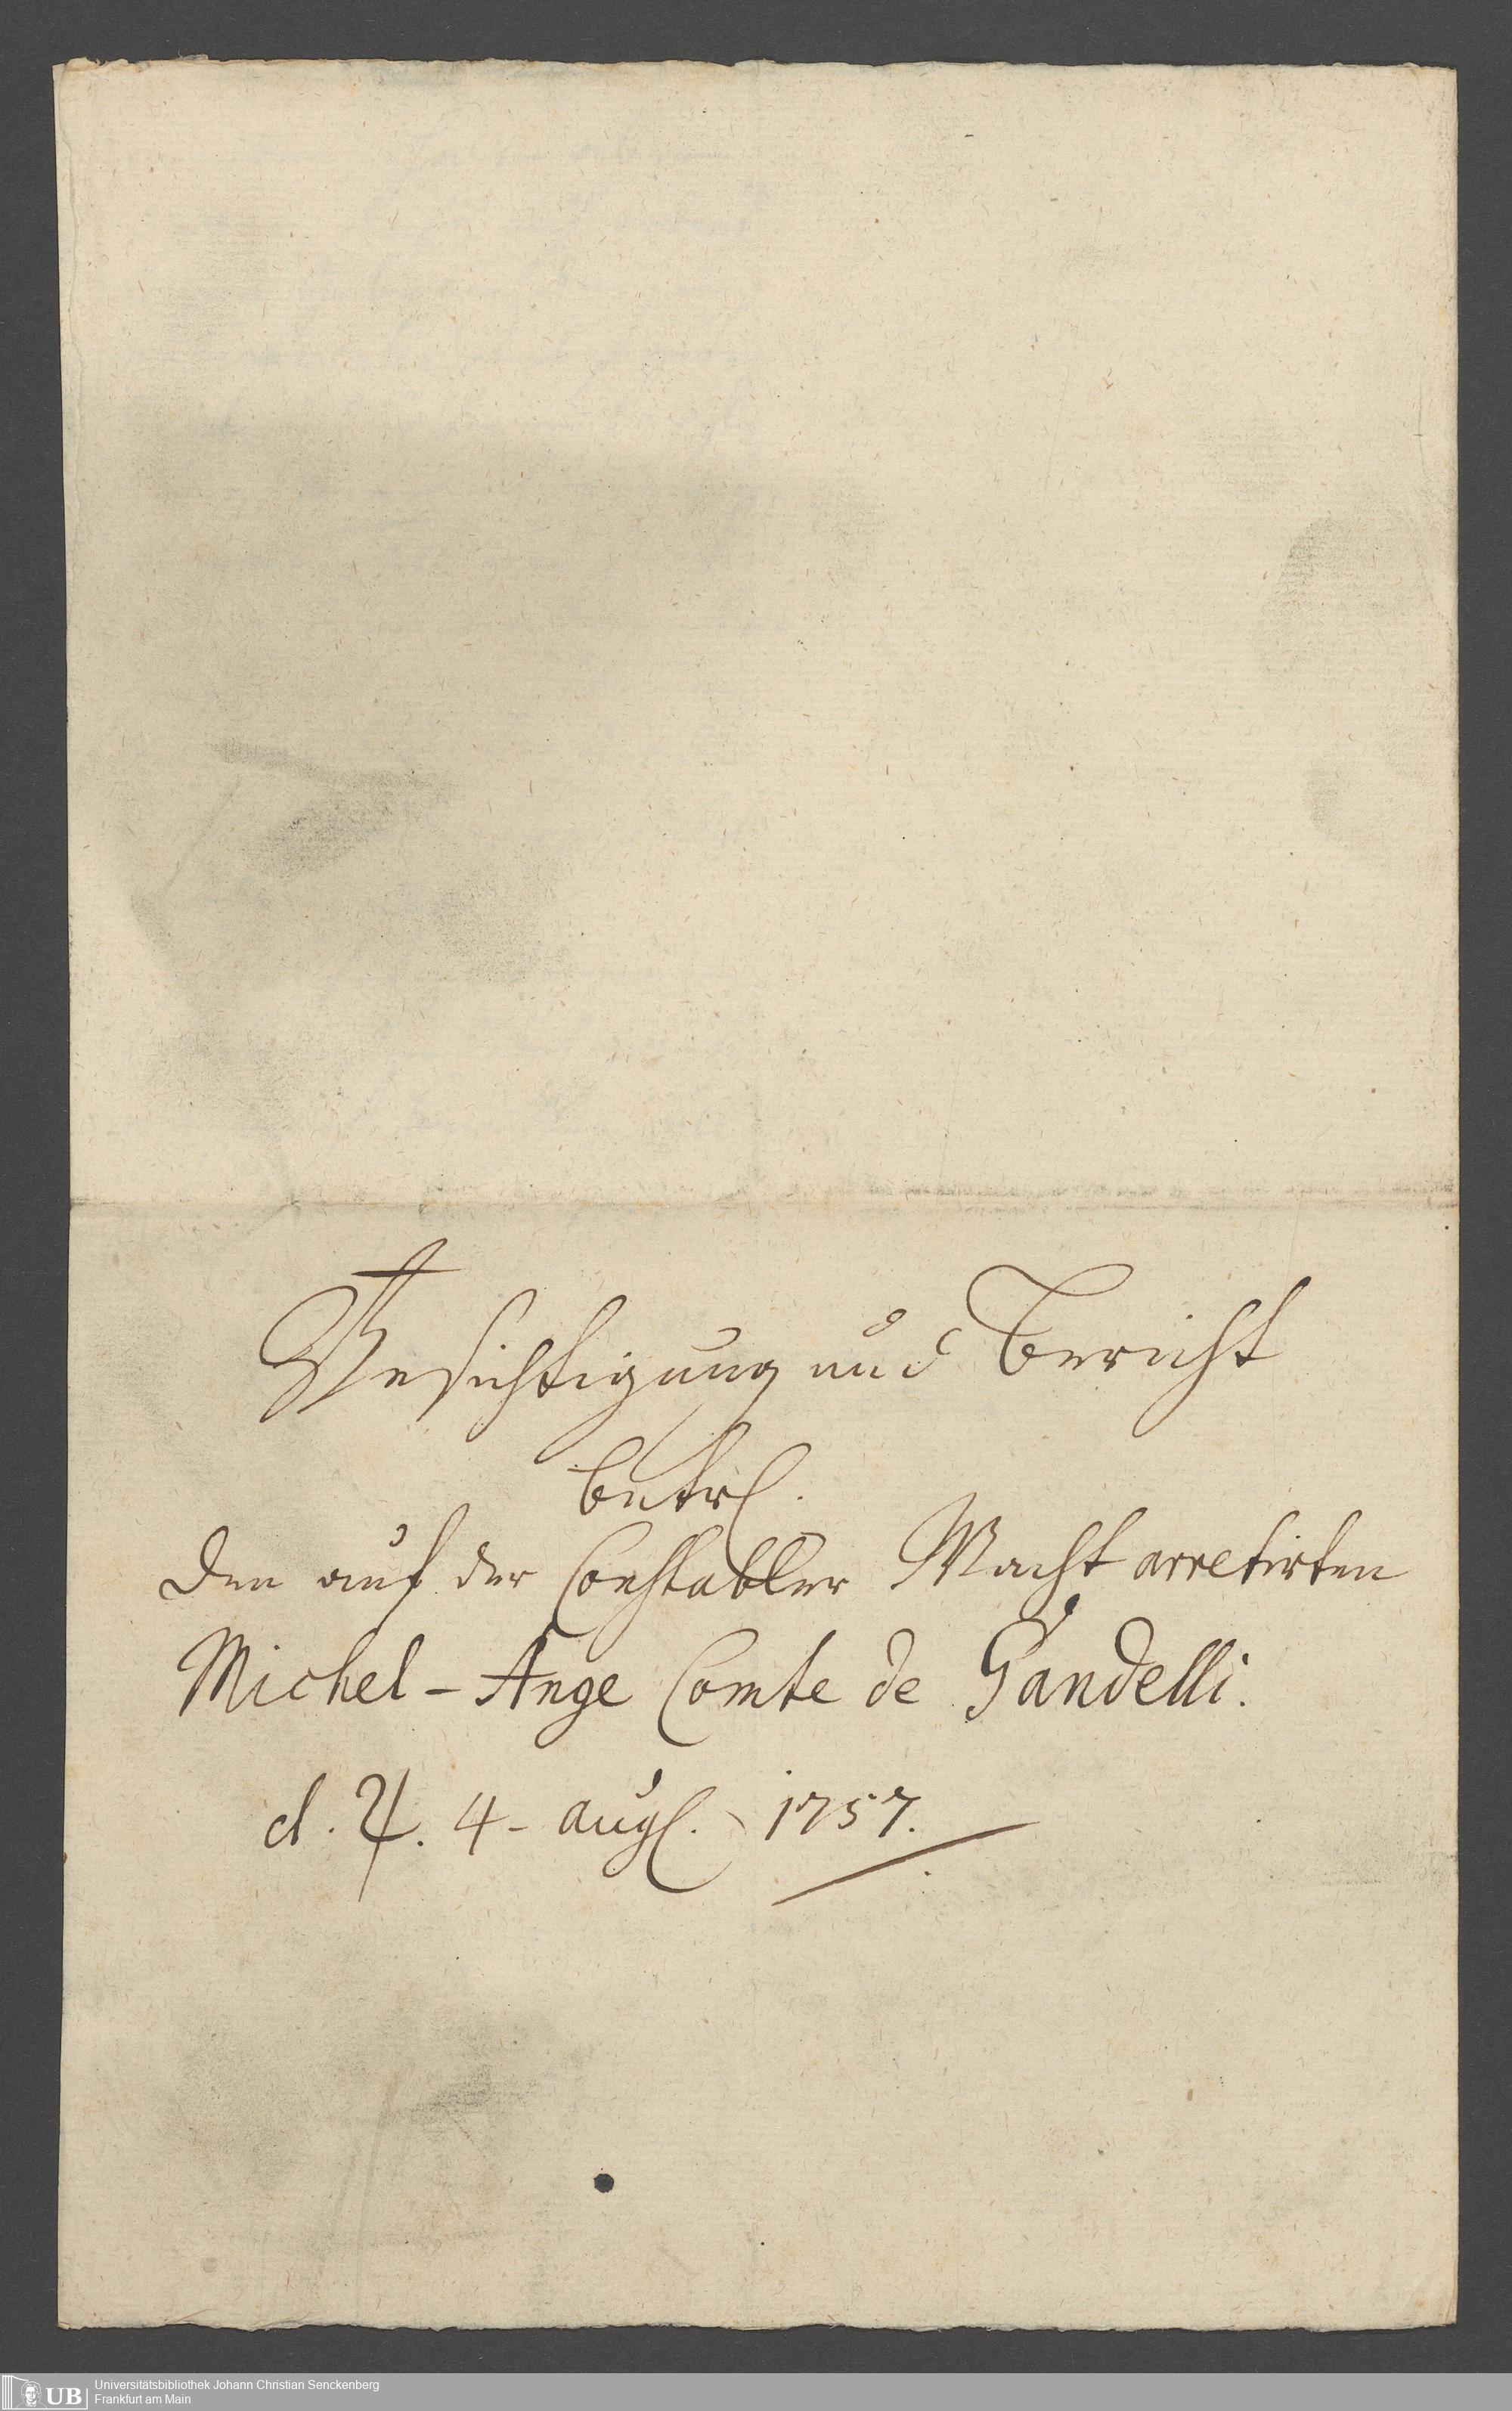 Besichtigung und Bericht
betrl.
den auf der Constabler Wacht arretirten
Michel-Ange Comte de Gandelli.
d. ♃. 4 - augl. 1757.
UB Universitätsbibliothek Johann Christian Senckenberg
Frankfurt am Main